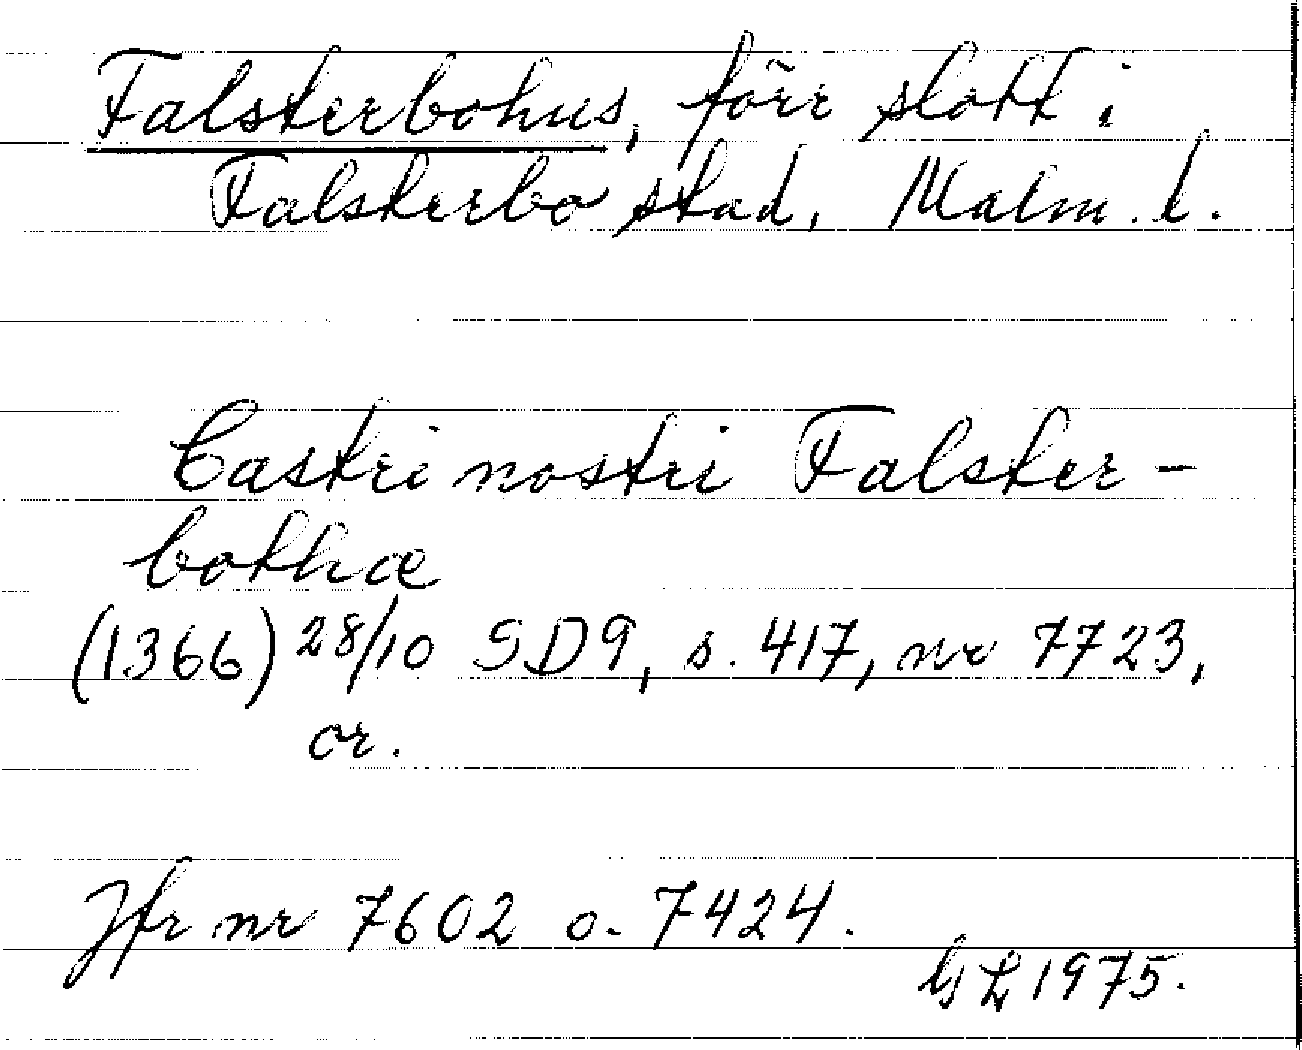 Falsterbohus, förr slott i
Falsterbo stad, Malm. l.
Castri nostri Falster-
bothæ
(1366) 28/10 SD9, s. 417, nr 7723,
or.
Jfr nr 7602 o. 7424.
GL 1975.